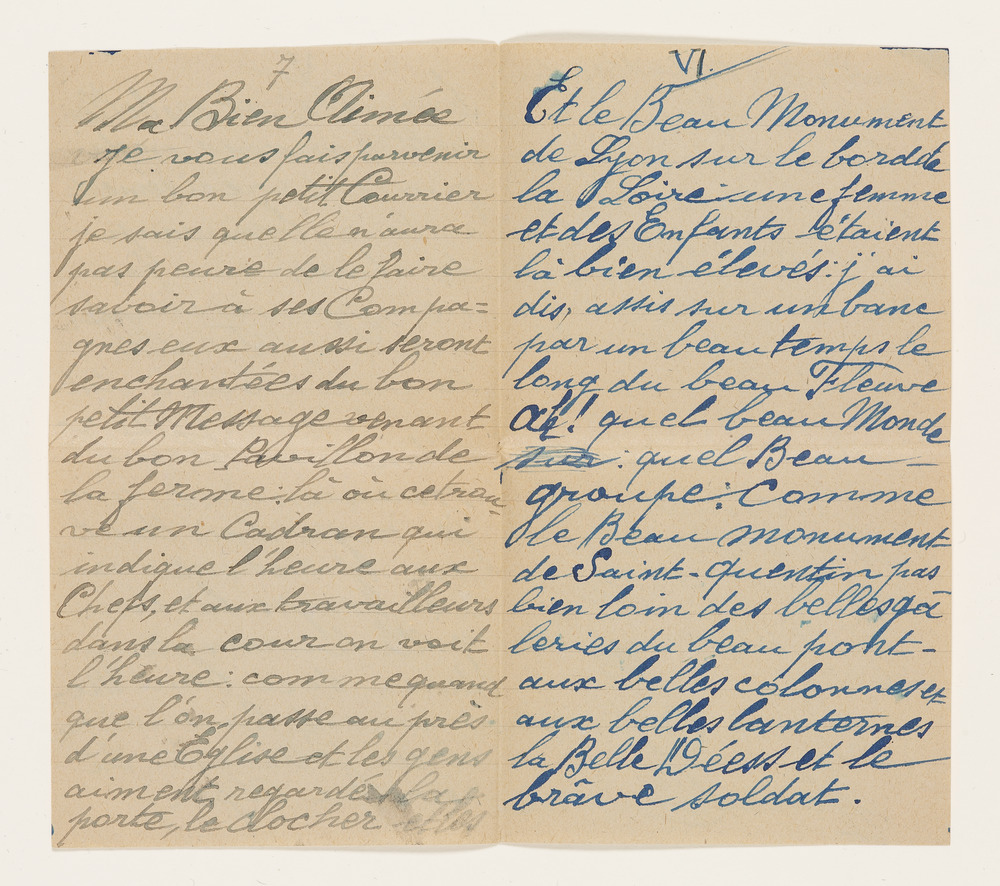 7
Ma Bien Aimée
je vous fais parvenir
un bon petit Courrier
je sais quelle n'aura
pas peure de le faire
savoir à ses Compa=
gnes eux aussi seront
enchantées du bon
petit Message venant
du bon Pavillon de
la ferme: là où ce trou
ve un Cadran qui
indique l'heure aux
Chefs, et aux travailleurs
dans la cour on voit
l'heure: comme quand
que l'on passe au près
d'une Église et les gens
aiment regardés la
porte, le Clocher et les
VI.
Et le Beau Monument
de Lyon sur le bord de
la Loire une femme
et des Enfants étaient
là bien élevés: j'ai
dis, assis sur un banc
par un beau temps le
long du beau Fleuve
ah! quel beau Monde
sur: quel Beau -
groupe: Comme
le Beau monument
de Saint-quentin pas
bien loin des belles ga
leries du beau pont-
aux belles colonnes et
aux belles lanternes
la Belle Déess et le
brâve soldat.